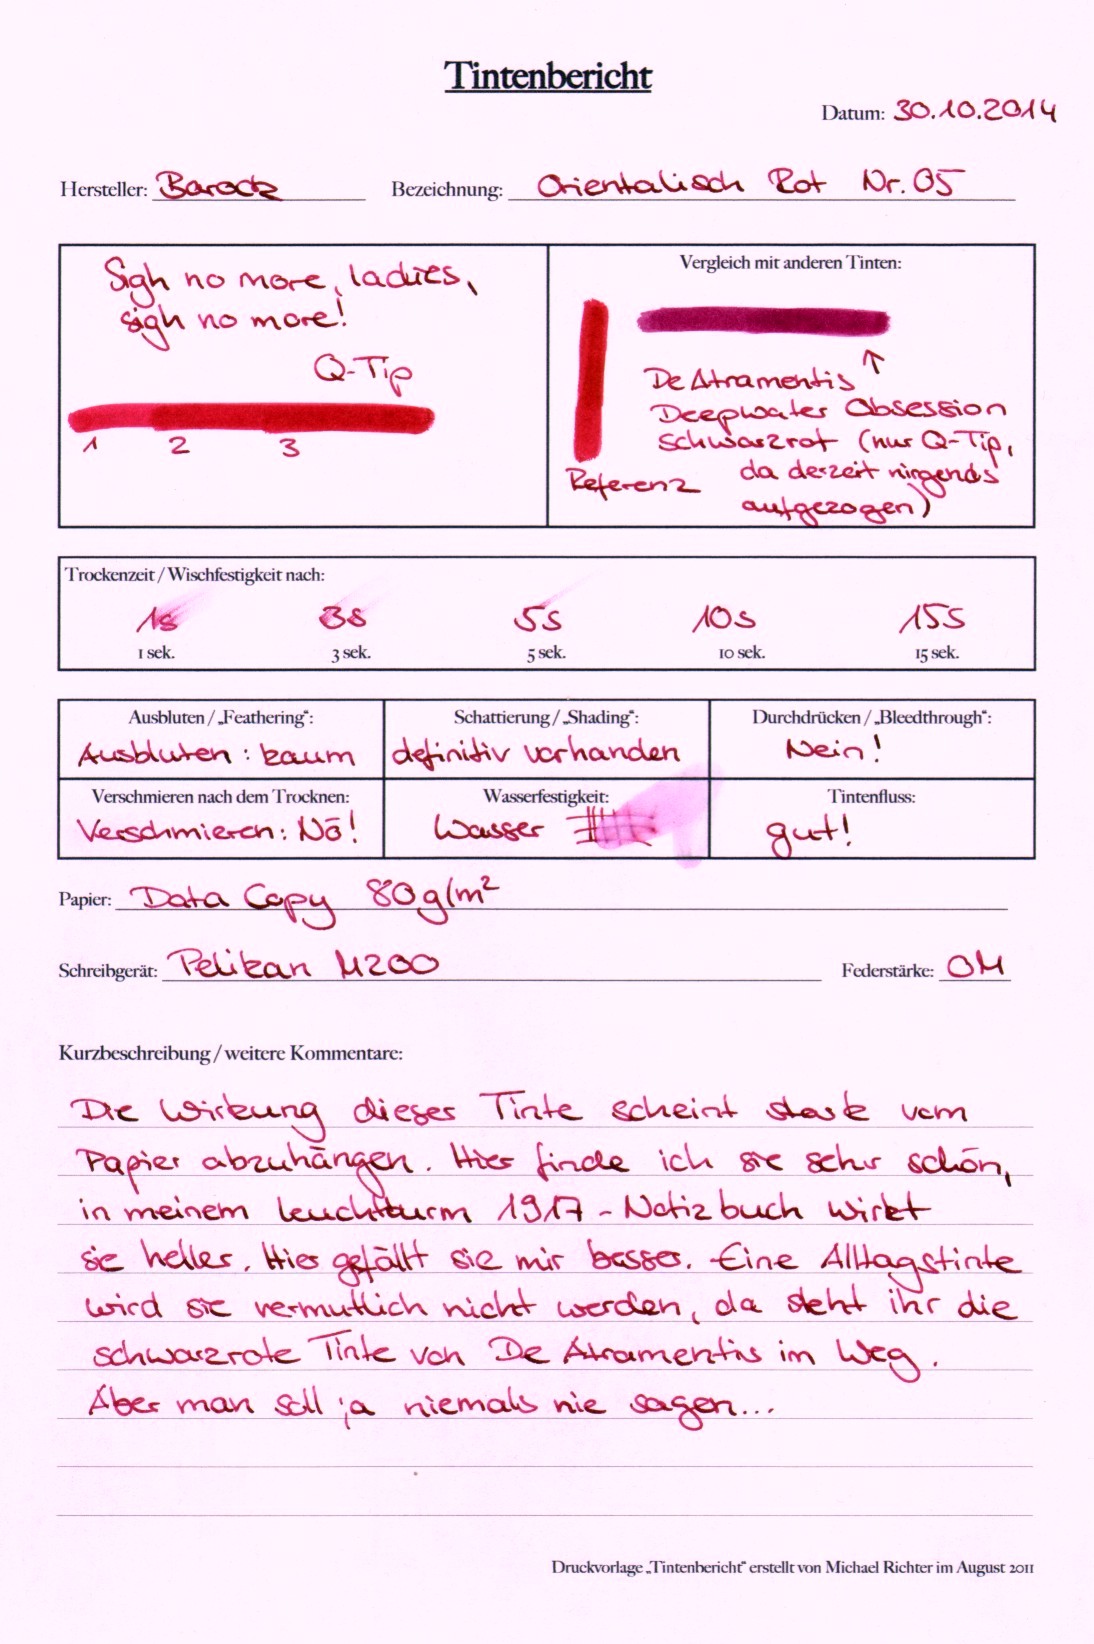 Tintenbericht
Datum: 30.10.2014
Hersteller: Barock Bezeichnung: Orientalisch Rot Nr. 05
Sigh no more, ladies,
sigh no more!
Q-Tip
1 2 3
Vergleich mit anderen Tinten:
De Atramentis ↑
Deepwater Obsession
schwarzrot (nur Q-Tip,
da derzeit nirgends
aufgezogen)
Referenz
Trockenzeit / Wischfestigkeit nach:
1s 3s 5s 10s 15s
1 sek. 3 sek. 5 sek. 10 sek. 15 sek.
Ausbluten / „Feathering“: Schattierung / „Shading“: Durchdrücken / „Bleedthrough“:
Ausbluten: kaum definitiv vorhanden Nein!
Verschmieren nach dem Trocknen: Wasserfestigkeit: Tintenfluss:
Verschmieren: Nö! Wasser gut!
Papier: Data Copy 80g/m²
Schreibgerät: Pelikan M200 Federstärke: OM
Kurzbeschreibung / weitere Kommentare:
Die Wirkung dieser Tinte scheint stark vom
Papier abzuhängen. Hier finde ich sie sehr schön,
in meinem Leuchtturm 1917-Notizbuch wirkt
sie heller. Hier gefällt sie mir besser. Eine Alltagstinte
wird sie vermutlich nicht werden, da steht ihr die
schwarzrote Tinte von De Atramentis im Weg.
Aber man soll ja niemals nie sagen...
Druckvorlage „Tintenbericht“ erstellt von Michael Richter im August 2011